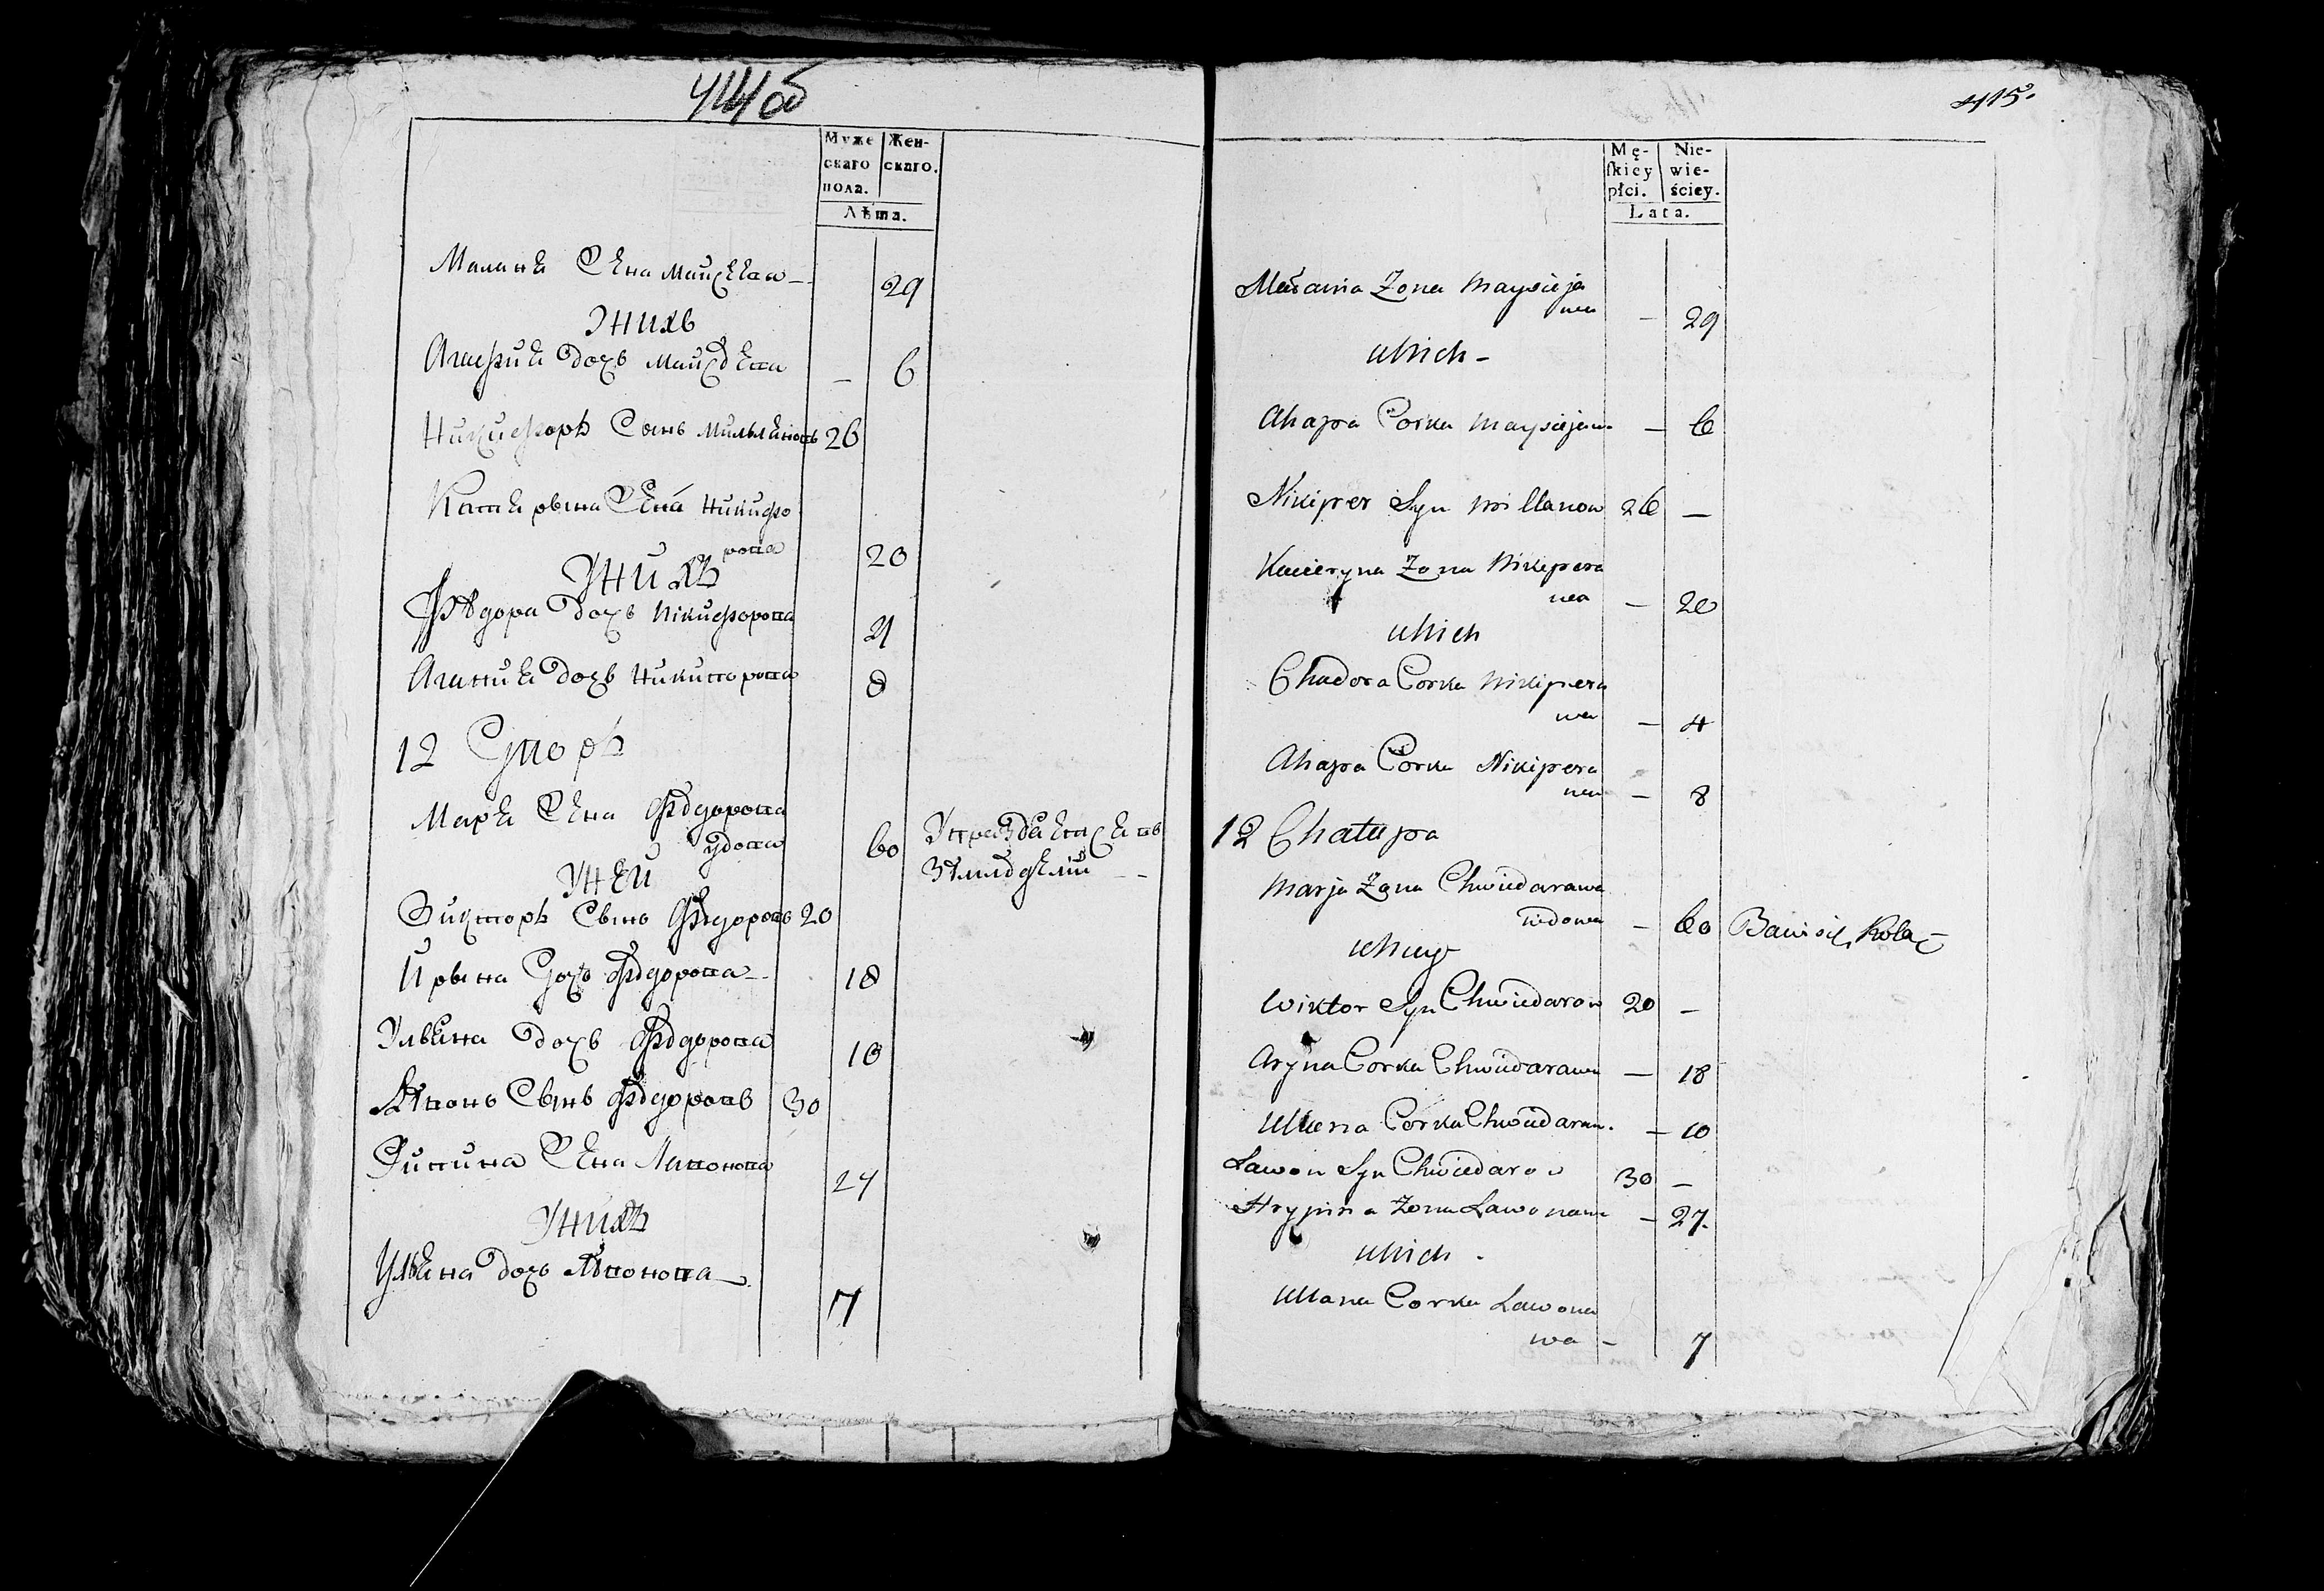 414 об
Муже
скаго
пола.
Жен-
скаго.
Лѣта.
Маланя Жена Мойсеева
29
Унихъ
дочь Мойсеева
— 6
Никифоръ Сынъ 26
Катерына Жена Никифо
рова
20
Унихъ
Фѣдора дочь Никифорова
4
дочь Никифорова
8
12 Дворъ
Маря Жена Фѣдорова
удова
60
Уней
Виктторъ Сынъ Фѣдоровъ 20
Ирына дочь Фѣдорова
18
Ульяна дочь Фѣдорова
10
Лѣвонъ Сынъ Фѣдоровъ 30
Жена Лавонова
27
Унихъ
Ульяна дочь Лѣвонова
7
415.
Mę-
ſkiey
płci.
Nie-
wie-
ściey.
Lata.
Małania Zona Maysieja
wa — 29
Unich
Ahapa Corka Maysiejawa — 6
Nikiper Syn 26 —
Kacieryna Zona Nikipera
wa — 20
Unich
Chadora Corka Nikipera
wa — 4
Ahapa Corka Nikipera
wa — 8
12 Chatupa
Marja Zona Chwiedarawa
wdowa — 60 Bawić
Uniey
Wiktor Syn Chwiedarow 20 —
Aryna Corka Chwiedarawa — 18
Corka Chwiedaraw. — 10
Lawon Syn Chwiedarow 30 —
Hrypina Zona Lawonawa — 27.
Unich
Ullana Corka Lawona
wa — 7